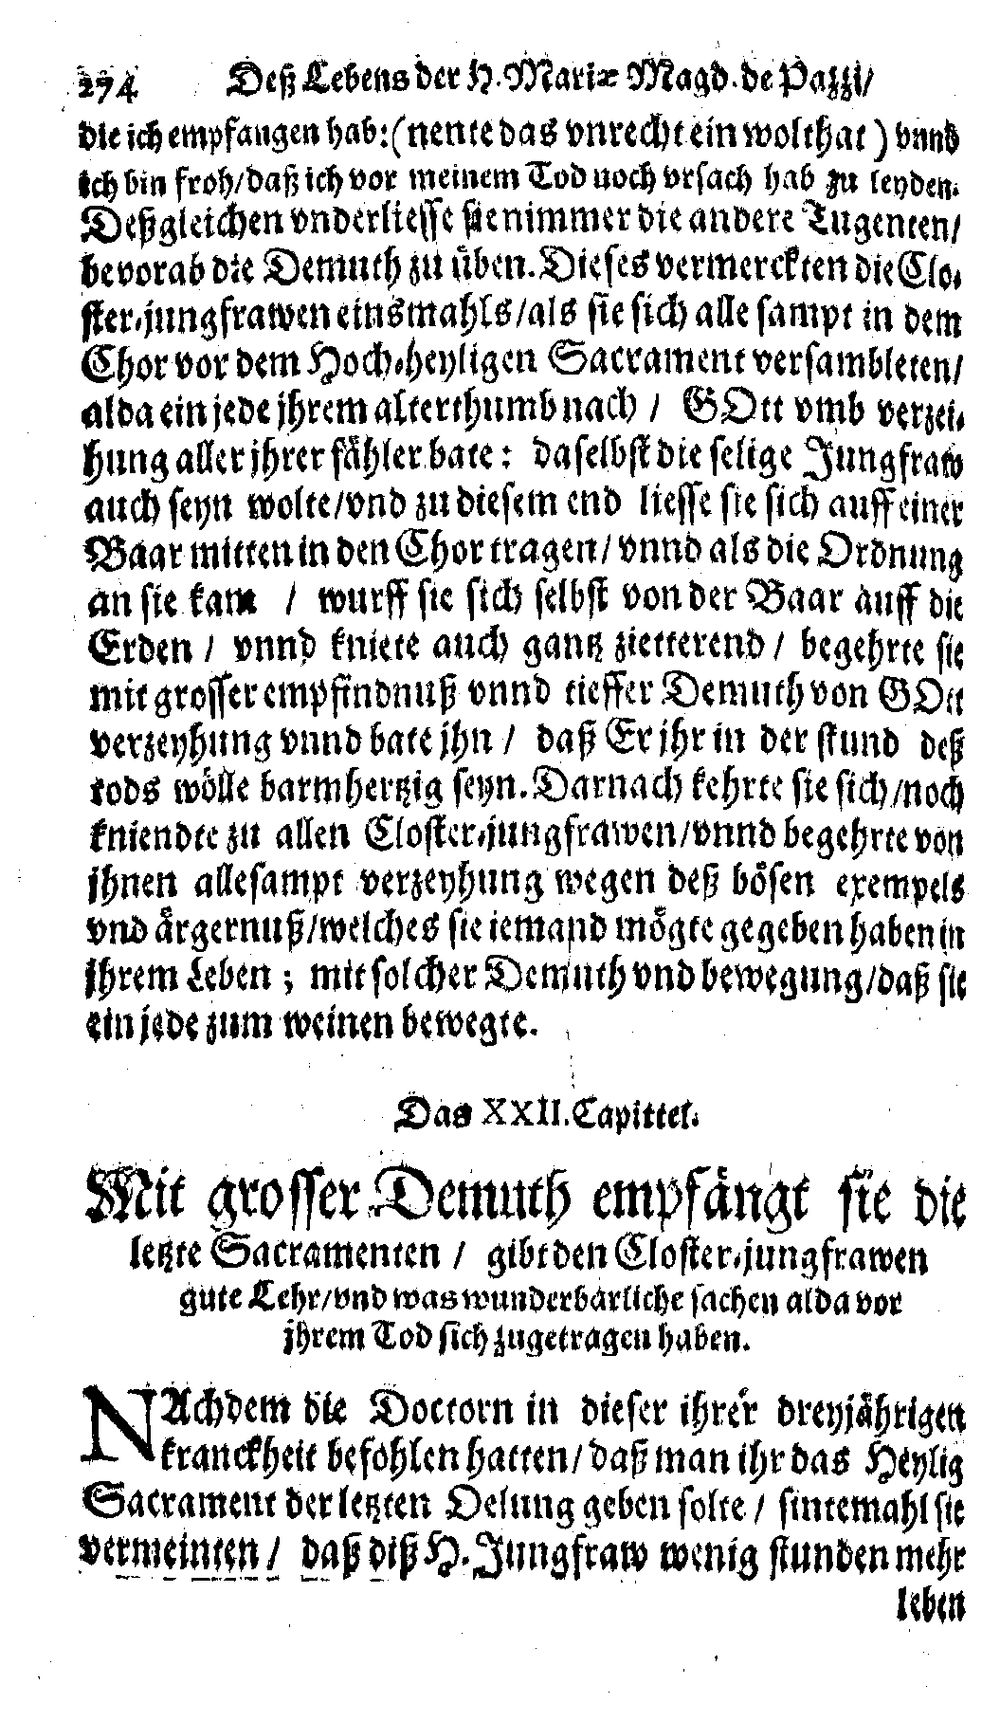 274 Deß Lebens der H. Mariæ Magd. de Pazzi/
die ich empfangen hab: (nente das vnrecht ein wolthat) vnnd
ich bin froh/ daß ich vor meinem Tod noch vrsach hab zu leyden.
Deßgleichen vnderliesse sie nimmer die andere Tugenten/
bevorab die Demuth zu üben. Dieses vermerckten die Clo-
ster-jungfrawen einsmahls/ als sie sich alle sampt in dem
Chor vor dem Hoch-heyligen Sacrament versambleten/
alda ein jede jhrem alterthumb nach / GOtt vmb verzei-
hung aller jhrer fähler bate: daselbst die selige Jungfraw
auch seyn wolte/ vnd zu diesem end liesse sie sich auff einer
Baar mitten in den Chor tragen/ vnnd als die Ordnung
an sie kam / wurff sie sich selbst von der Baar auff die
Erden / vnnd kniete auch gantz zietterend / begehrte sie
mit grosser empfindnuß vnnd tieffer Demuth von GOtt
verzeyhung vnnd bate jhn / daß Er jhr in der stund deß
tods wölle barmhertzig seyn. Darnach kehrte sie sich/ noch
kniendte zu allen Closter-jungfrawen/ vnnd begehrte von
jhnen allesampt verzeyhung wegen deß bösen exempels
vnd ärgernuß/ welches sie iemand mögte gegeben haben in
jhrem Leben ; mit solcher Demuth vnd bewegung/ daß sie
ein jede zum weinen bewegte.
Das XXII. Capittel.
Mit grosser Demuth empfängt sie die
letzte Sacramenten / gibt den Closter-jungfrawen
gute Lehr/ vnd was wunderbarliche sachen alda vor
jhrem Tod sich zugetragen haben.
NAchdem die Doctorn in dieser ihrer dreyjährigen
kranckheit befohlen hatten/ daß man ihr das Heylig
Sacrament der letzten Oelung geben solte / sintemahl sie
vermeinten / daß diß H. Jungfraw wenig stunden mehr
leben